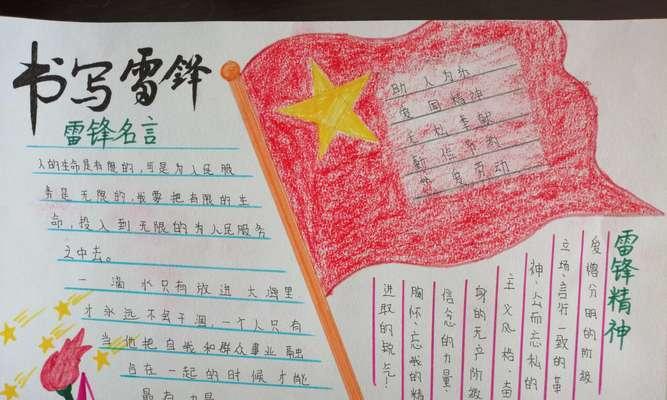 书写雷锋
雷锋名言
人的生命是有限的,可是为人民服
务是无限的,我要把有限的生
命,投入到无限的为人民服务
之中去。
一滴水只有放进大海里
才永远不会干涸,一个人只有
当他把自我和群众事业融
合在一起的时候才能
最有力量
助人为乐
爱国精神
无私奉献
勤俭节约
热爱劳动
雷锋精神
爱憎分明的阶级
立场、言行一致的革
神、公而忘私的
主义风格、奋
身的无产阶级
信念的力量、
胸怀、忘我的精
进取的锐气!